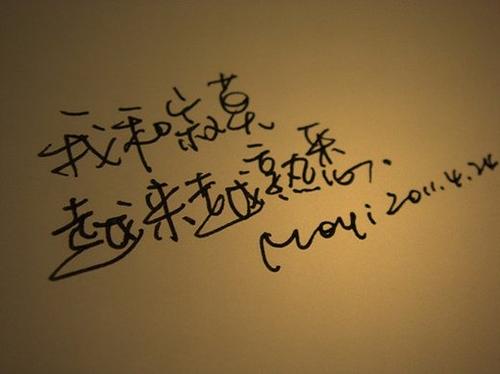 我和寂寞
越来越熟悉.
2011.4.24